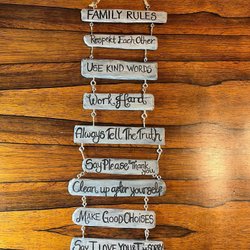 FAMILY RULES
Respect Each Other
USE KIND WORDS
Work Hard
Always Tell The Truth
Say Please Thank
you
Clean up after yourself
MAKE GOOD CHOISES
Say I LOVE YOU